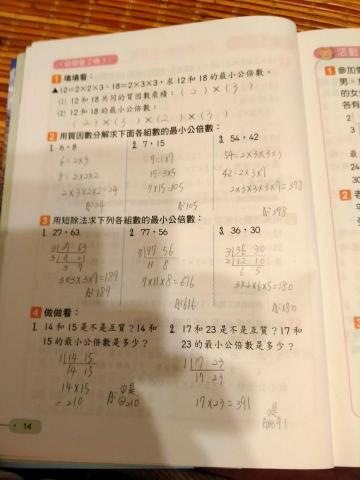 1 填填看：
▲12=2×2×3、18=2×3×3，求 12 和 18 的最小公倍數。
(1) 12 和 18 共同的質因數乘積：( 2 ) × ( 3 )
(2) 12 和 18 的最小公倍數：
( 2 ) × ( 3 ) × ( 2 ) × ( 3 )
2 用質因數分解求下面各組數的最小公倍數：
1. 6，8 2. 7，15 3. 54，42
6=2×3 7=1×7 54=2×3×3×3
8=2×2×2 15=3×5 42=2×3×7
2×3×2×2=24 7×15=105 2×3×3×3×7=398
A:24 A:105 A:398
3 用短除法求下列各組數的最小公倍數：
1. 27，63 2. 77，56 3. 36，30
3 27 63 7 77 56 3 36 30
3 9 21 11 8 2 12 10
3 7 6 5
3×3×3×7=189 7×11×8=616 3×2×6×5=180
A:189 A:616 A:180
4 做做看：
1. 14 和 15 是不是互質？14 和 15 的最小公倍數是多少？
2. 17 和 23 是不是互質？17 和 23 的最小公倍數是多少？
1 14 15 1 17 23
14 15 17 23
14×15 A:①是
=210 ②210
17×23=391
是
A:391
14
活動
1 參加
2
3